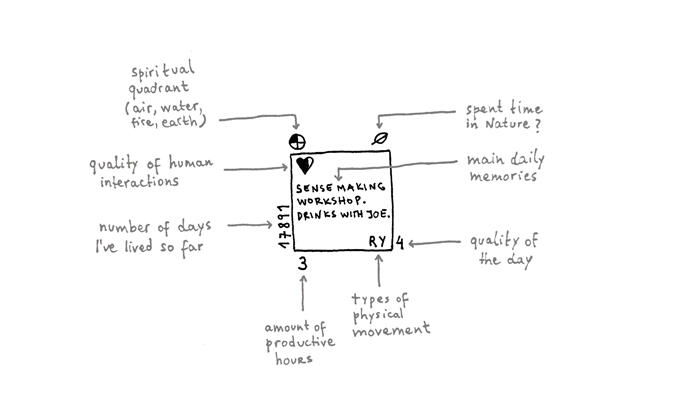 spiritual
quadrant
(air, water,
fire, earth)
spent time
in Nature?
quality of human
interactions
main daily
memories
SENSE MAKING
WORKSHOP.
DRINKS WITH JOE.
number of days
I've lived so far
17891
RY
4
quality of
the day
3
amount of
productive
hours
types of
physical
movement